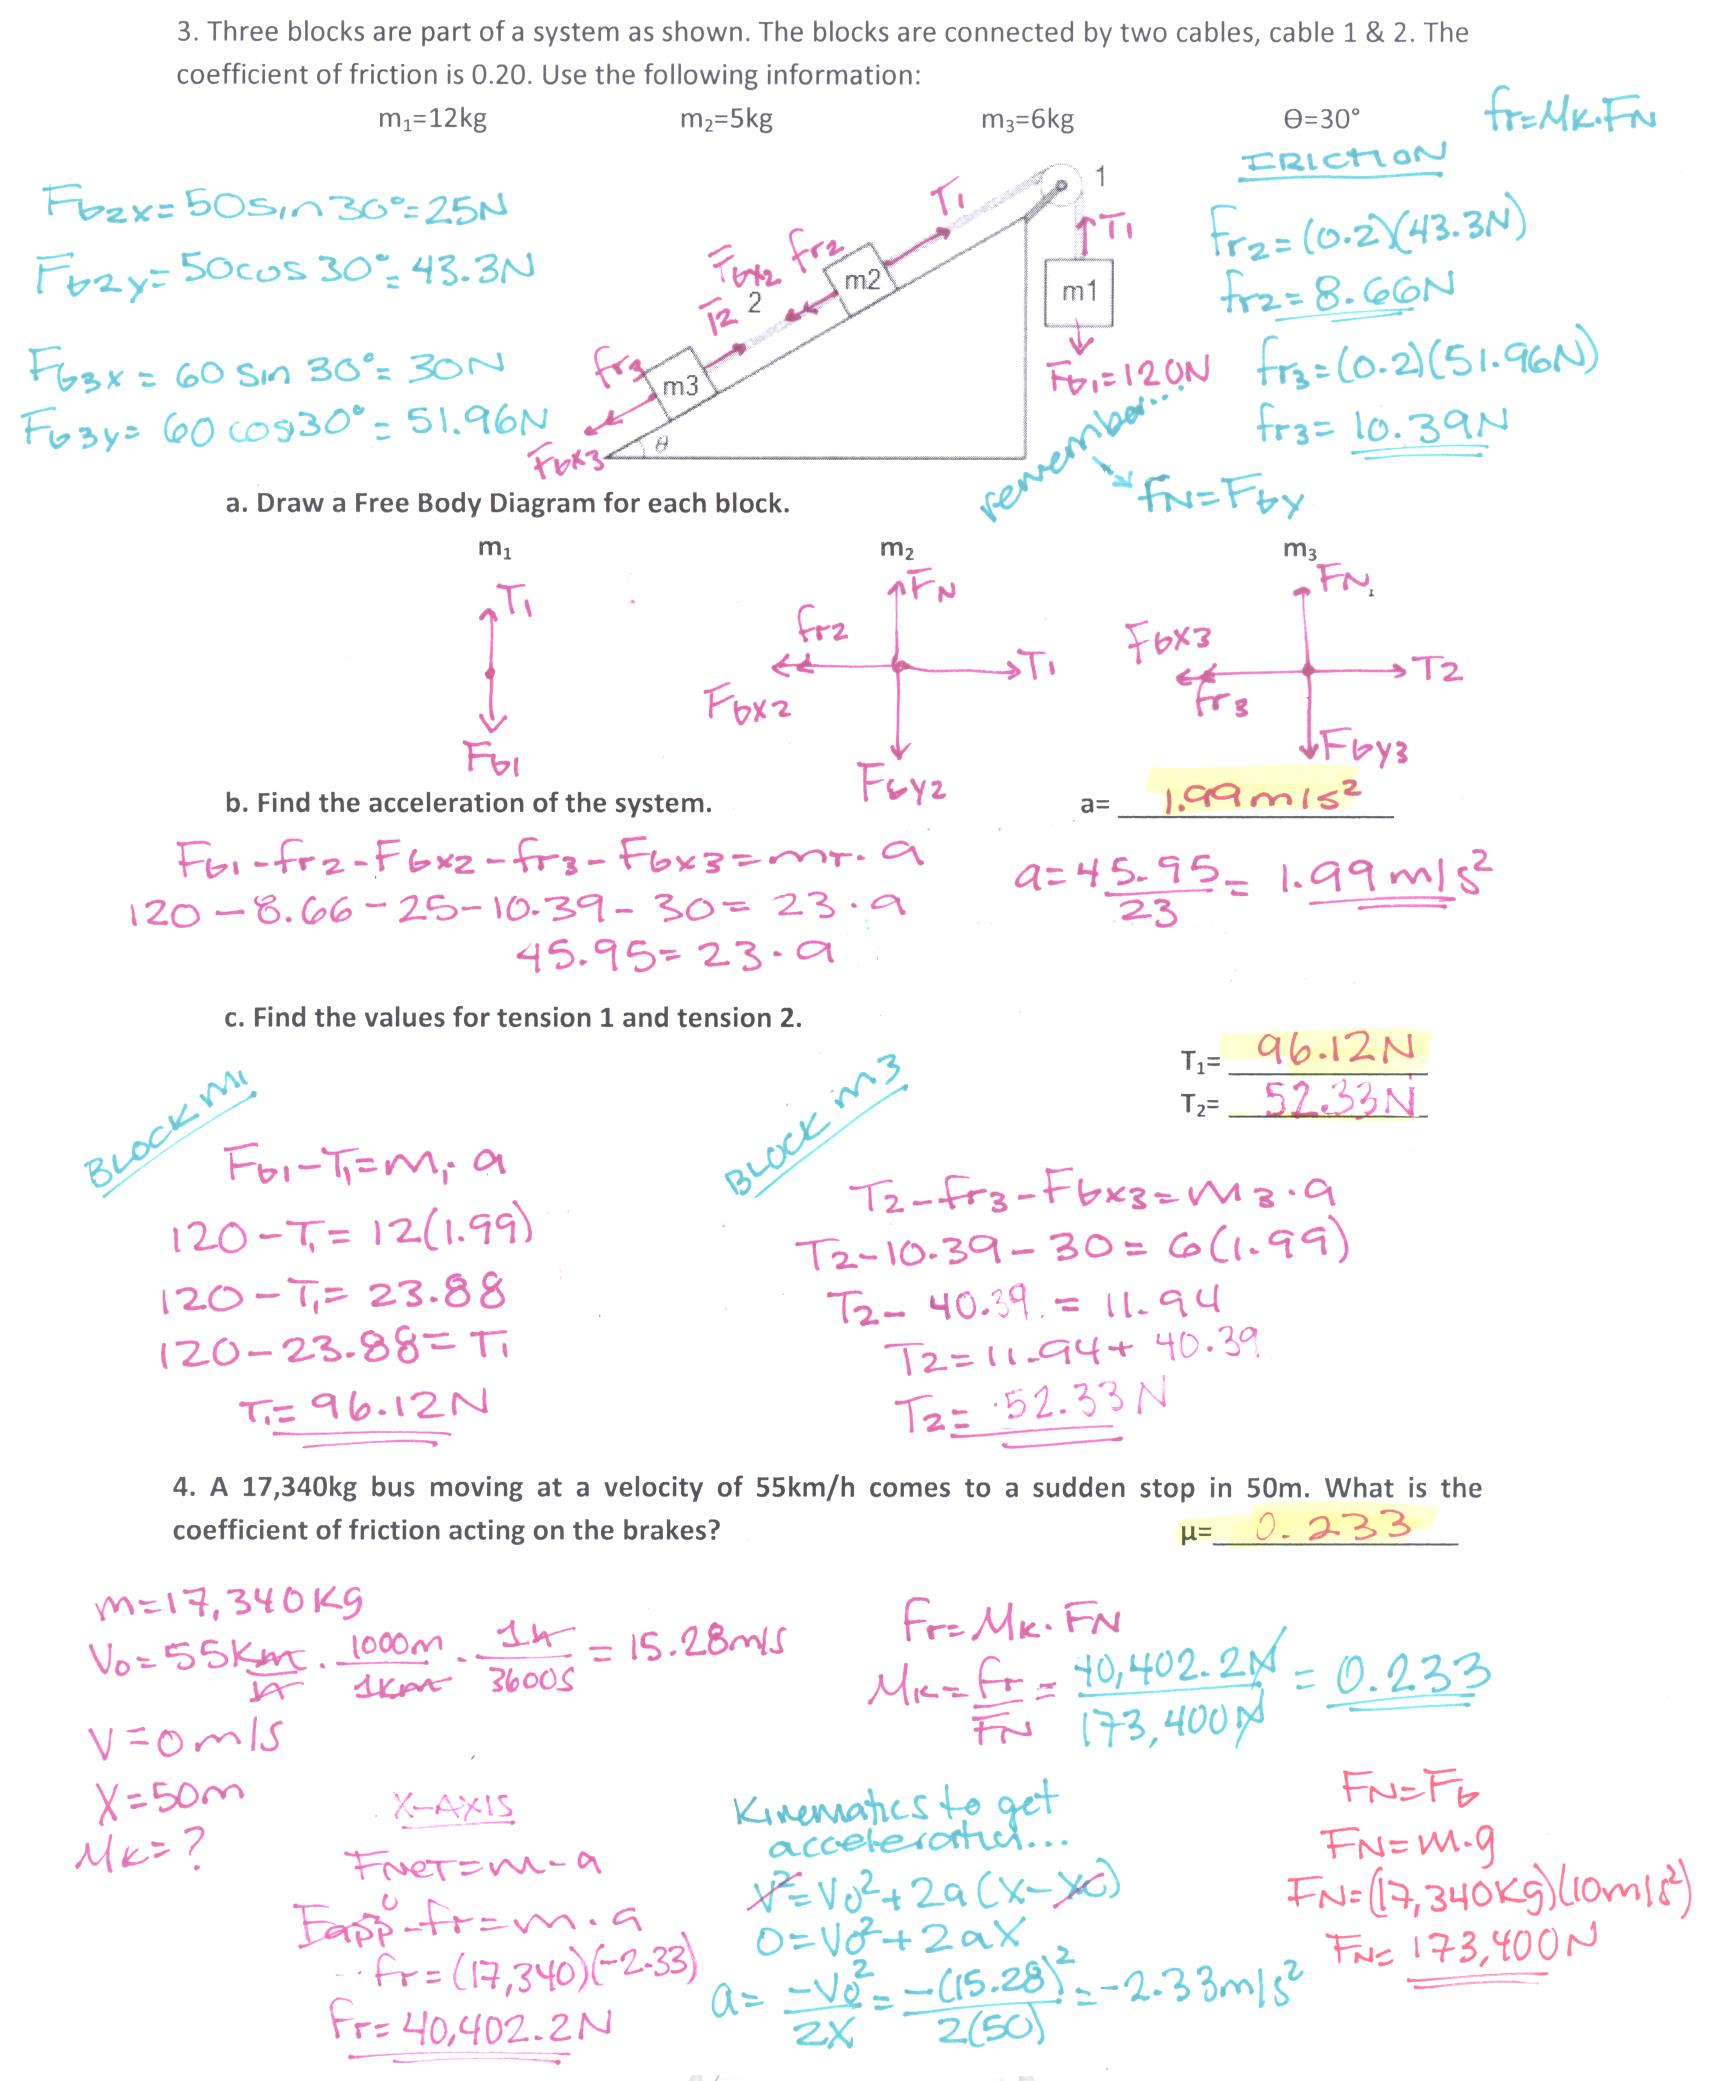 3. Three blocks are part of a system as shown. The blocks are connected by two cables, cable 1 & 2. The
coefficient of friction is 0.20. Use the following information:
m₁=12kg m₂=5kg m₃=6kg Θ=30°
fr=Mk.FN
FRICTION
FG2x=50sin30°=25N
FG2y=50cos30°=43.3N
FG3x=60 sin 30°=30N
FG3y=60 cos30°=51.96N
T1
1
T1
fr2
FGX2
m2
m1
2
T2
fr3
m3
FG1=120N
θ
FGX3
fr2=(0.2)(43.3N)
fr2=8.66N
fr3=(0.2)(51.96N)
fr3=10.39N
remember...
FN=FGY
a. Draw a Free Body Diagram for each block.
m₁ m₂ m₃
T1
FG1
FN
fr2
T1
FGX2
FGY2
FN
FGX3
T2
fr3
FGY3
b. Find the acceleration of the system.
a= 1.99m/s²
FG1-fr2-FGX2-fr3-FGX3=mT.a
120-8.66-25-10.39-30=23.a
45.95=23.a
a=45.95/23=1.99m/s²
c. Find the values for tension 1 and tension 2.
T₁= 96.12N
T₂= 52.33N
BLOCK M1
FG1-T1=m1.a
120-T1=12(1.99)
120-T1=23.88
120-23.88=T1
T1=96.12N
BLOCK M3
T2-fr3-FGX3=M3.a
T2-10.39-30=6(1.99)
T2-40.39=11.94
T2=11.94+40.39
T2=52.33N
4. A 17,340kg bus moving at a velocity of 55km/h comes to a sudden stop in 50m. What is the
coefficient of friction acting on the brakes?
μ= 0.233
m=17,340Kg
Vo=55Km/h . 1000m/1Km . 1h/3600s = 15.28m/s
V=0m/s
X=50m
Mk=?
Fr=Mk.FN
Mk=fr/FN=40,402.2N/173,400N=0.233
X-AXIS
FNET=m.a
Fapp-fr=m.a
0
-fr=(17,340)(-2.33)
fr=40,402.2N
Kinematics to get
acceleration...
V²=Vo²+2a(X-Xo)
0=Vo²+2aX
a=-Vo²/2X=-(15.28)²/2(50)=-2.33m/s²
FN=FG
FN=m.g
FN=(17,340Kg)(10m/s²)
FN=173,400N